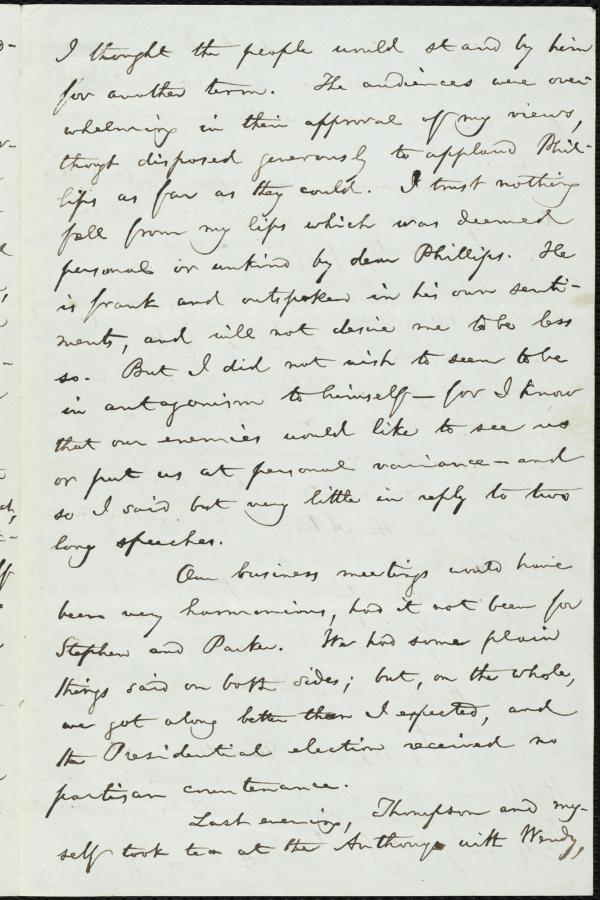 I thought the people would stand by him
for another term. The audiences were over-
whelming in their approval of my views,
though disposed generously to applaud Phil-
lips as far as they could. I trust nothing
fell from my lips which was deemed
personal or unkind by dear Phillips. He
is frank and outspoken in his own senti-
ments, and will not desire me to be less
so. But I did not wish to seem to be
in antagonism to himself — for I know
that our enemies would like to see us
or put us at personal variance — and
so I said but very little in reply to two
long speeches.
Our business meetings would have
been very harmonious, had it not been for
Stephen and Parker. We had some plain
things said on both sides; but, on the whole,
we got along better than I expected, and
the Presidential election received no
partisan countenance.
Last evening, Thompson and my-
self took tea at the Anthonys with Wendy,